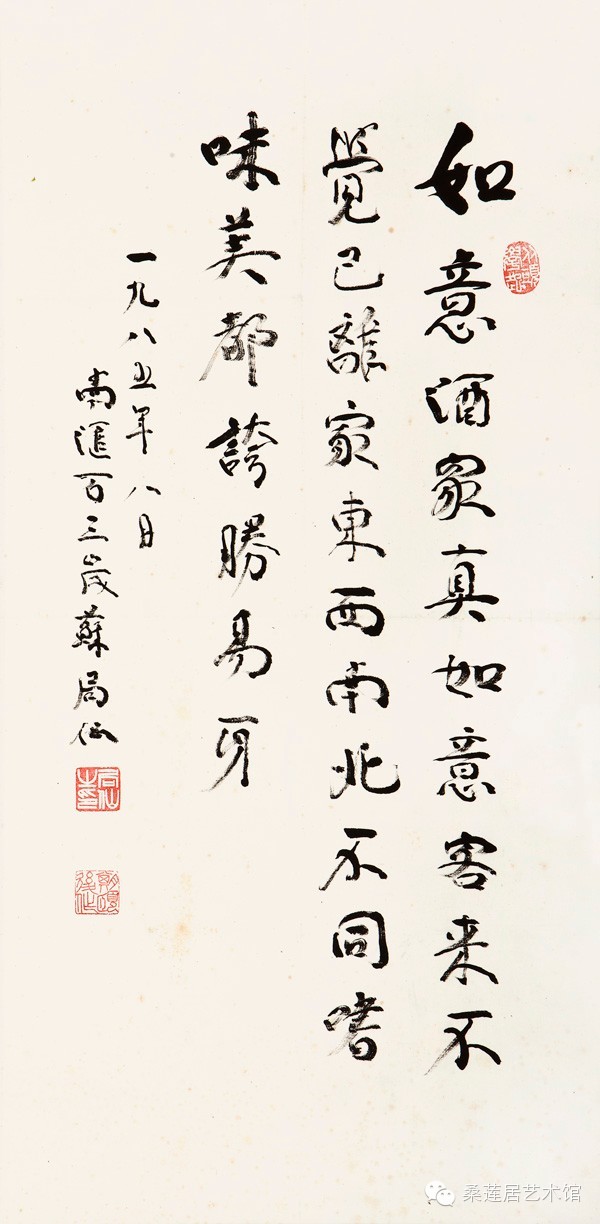 如意酒家真如意客来不
覺已離家東西南北不同嗜
味美都誇勝易牙
一九八五年八月
南滙百三歲蘇局仙
桑莲居艺术馆